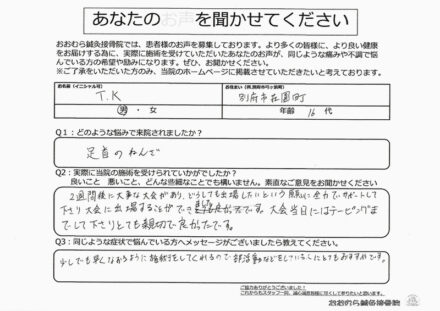 あなたのお声を聞かせてください
おおむら鍼灸接骨院では、患者様のお声を募集しております。より多くの皆様に、より良い健康
をお届けする為に、実際に施術を受けていただいたあなたのお声が、同じような痛みや不調で悩
んでいる方の希望や励みになります。ぜひ、お聞かせください。
※ご了承をいただいた方のみ、当院のホームページに掲載させていただきたいと考えております。
お名前（イニシャル可）
T.K
男・女
お住まい
別府市荘園町
年齢 16 代
Q1：どのような悩みで来院されましたか？
足首のねんざ
Q2：実際に当院の施術を受けられていかがでしたか？
良いこと 悪いこと、どんな些細なことでも構いません。素直なご意見をお聞かせください
2週間後に大事な大会があり、どうしても出場したいという願いに全力でサポートして
下さり大会に出場することができました。大会当日にはテーピングま
でして下さりとても親切で良かったです。
Q3：同じような症状で悩んでいる方へメッセージがございましたら教えてください。
少しでも早くなおるように施術をしてくれるので部活動などをしている人にとてもおすすめです。
ご協力ありがとうございました！
これからもスタッフ一同、誠心誠意皆様に尽くして参ります。
おおむら鍼灸接骨院